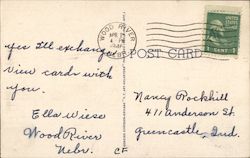 WOOD RIVER
NEBR.
POST CARD
1 CENT
yes I'll exchange
view cards with
you.
Ella Wiese
Wood River
Nebr.
CF
Nancy Rockhill
411 anderson St
Greencastle, Ind.